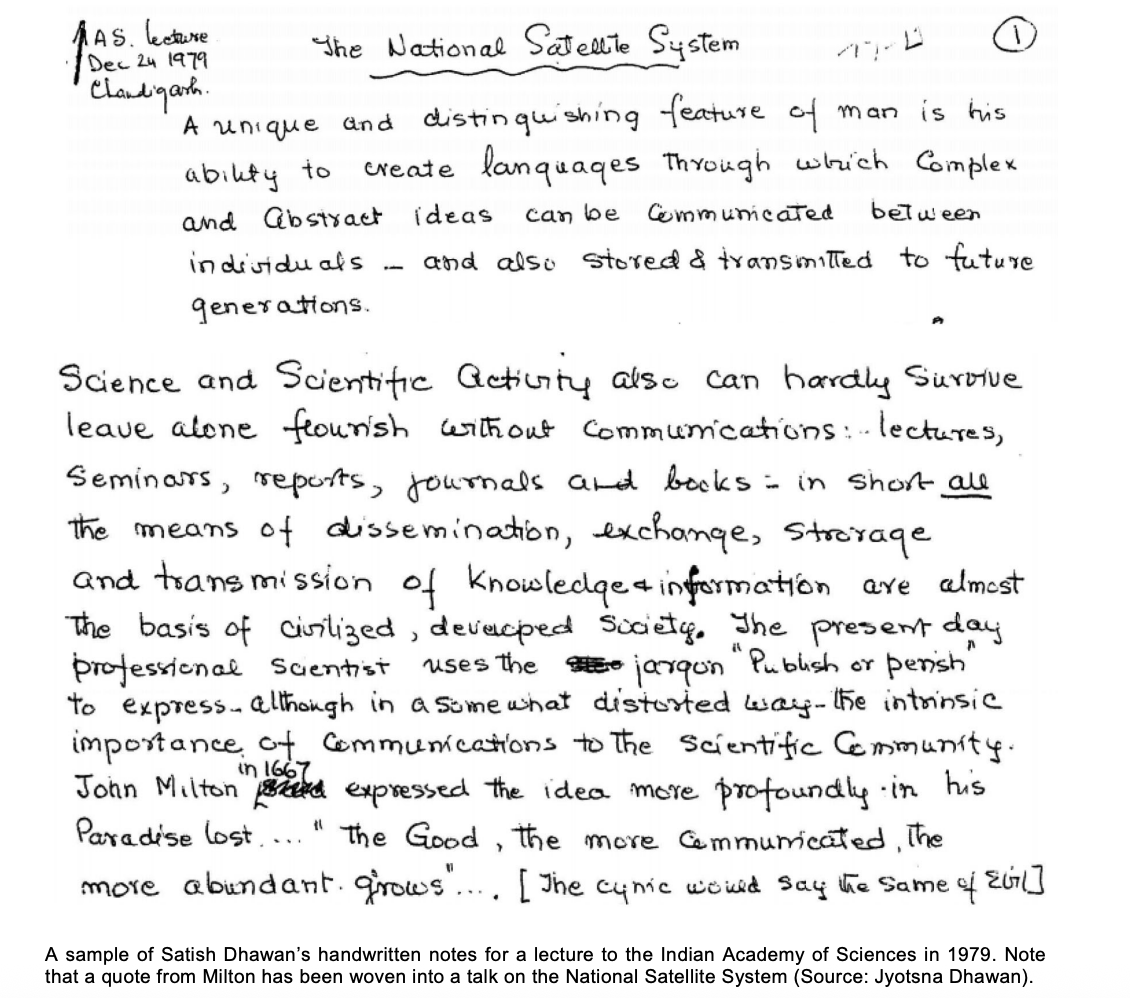 IAS. lecture
Dec 24 1979
Chandigarh.
The National Satellite System
1
A unique and distinguishing feature of man is his
ability to create languages through which Complex
and Abstract ideas can be Communicated between
individuals – and also stored & transmitted to future
generations.
Science and Scientific Activity also can hardly Survive
leave alone flourish without Communications: - lectures,
Seminars, reports, journals and books - in short all
the means of dissemination, exchange, Storage
and transmission of Knowledge & information are almost
the basis of civilized, developed Society. The present day
professional Scientist uses the jargon "Publish or perish"
to express - although in a somewhat distorted way - the intrinsic
importance of Communications to the Scientific Community.
John Milton in 1667 expressed the idea more profoundly - in his
Paradise lost .... " The Good, the more Communicated, The
more abundant grows".... [ The cynic would say the same of Evil]
A sample of Satish Dhawan's handwritten notes for a lecture to the Indian Academy of Sciences in 1979. Note
that a quote from Milton has been woven into a talk on the National Satellite System (Source: Jyotsna Dhawan).